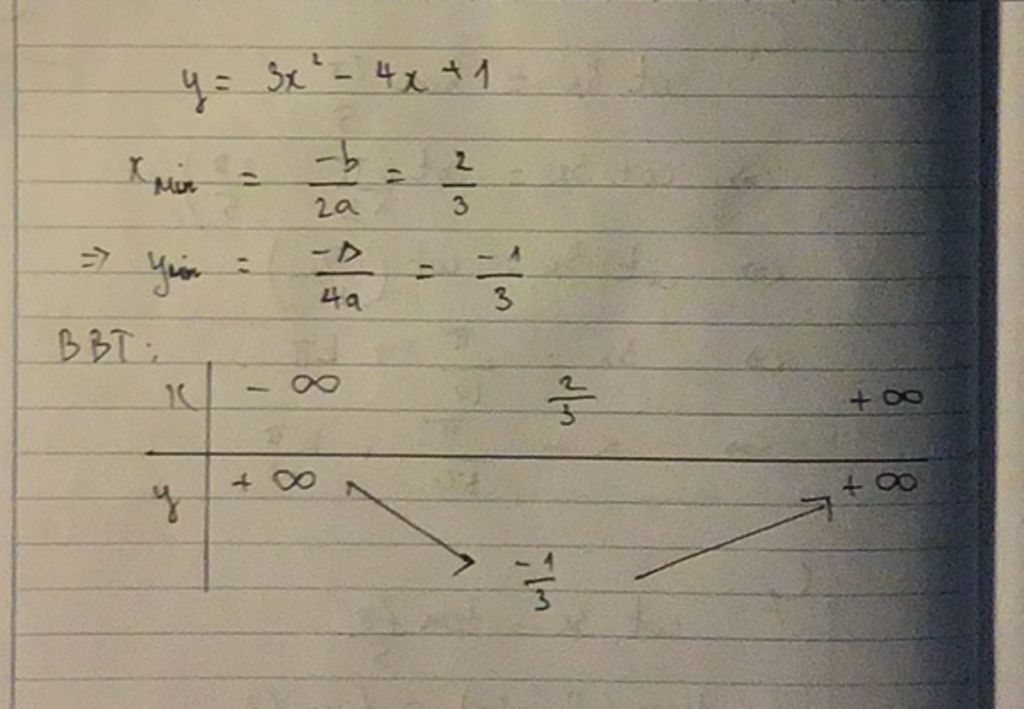 y = 3x² - 4x + 1
x min = -b/2a = 2/3
=> y min = -Δ/4a = -1/3
BBT:
x | -∞ 2/3 +∞
y | +∞ ↘ -1/3 ↗ +∞